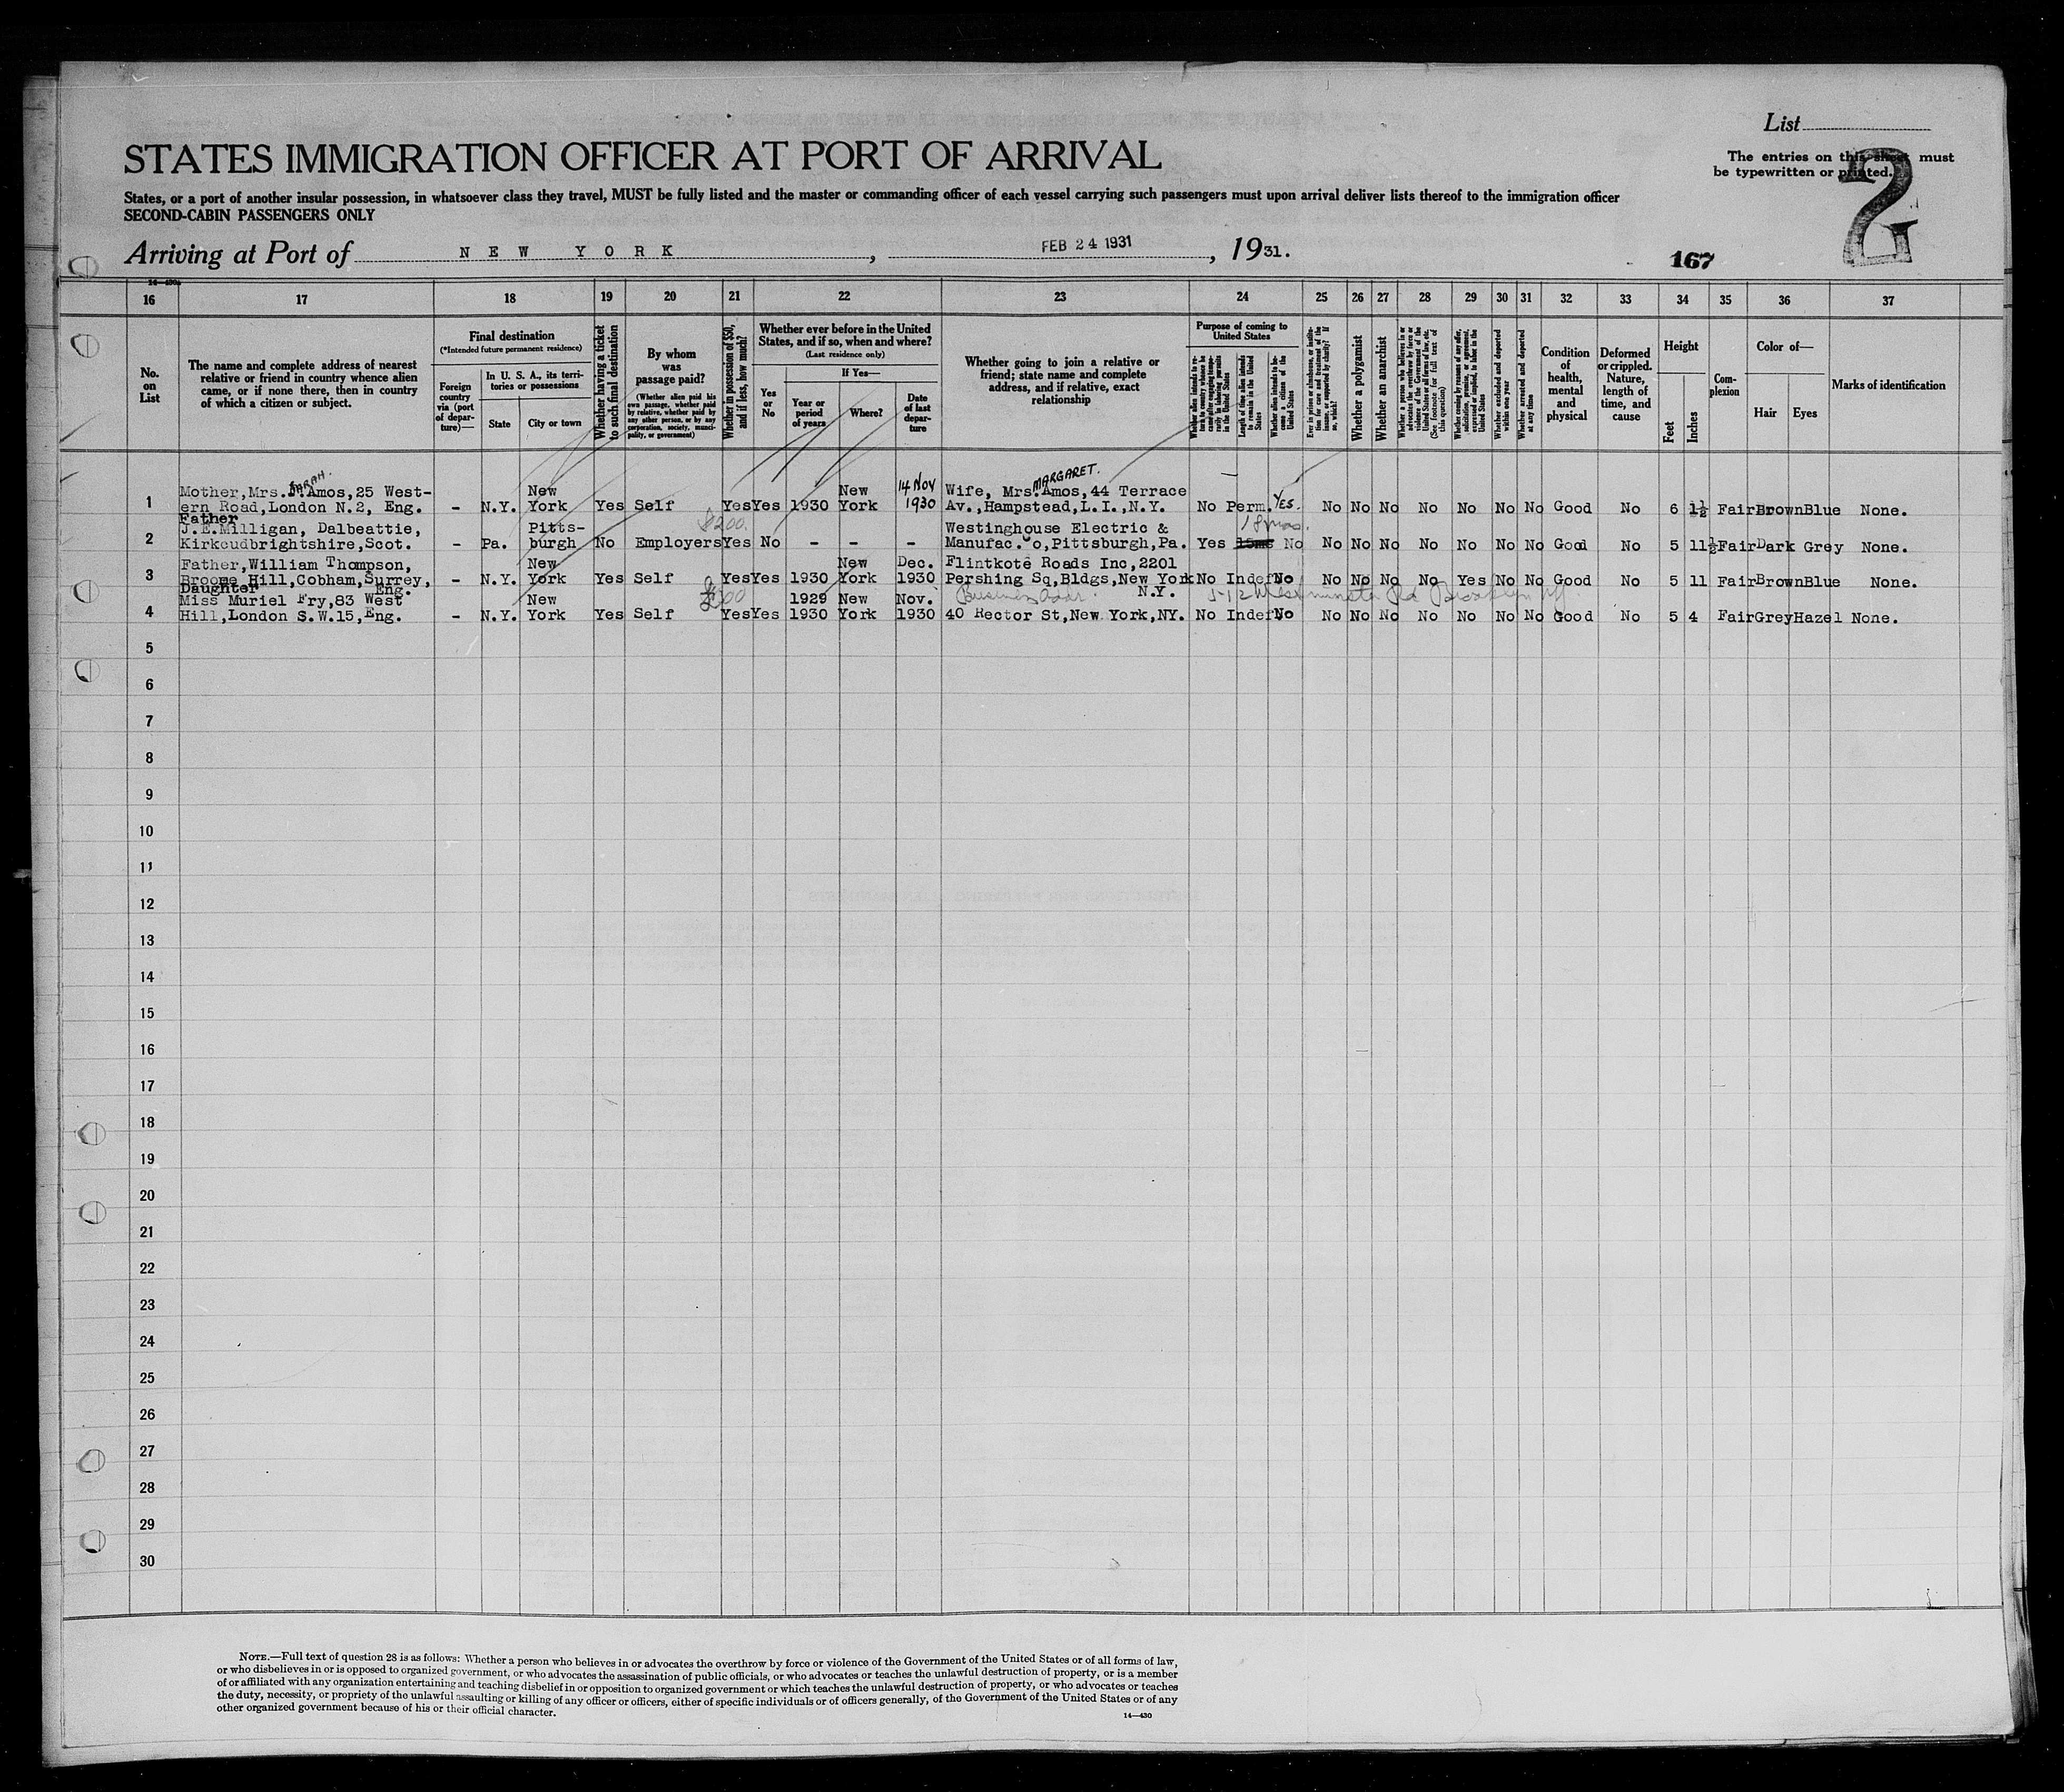 List
The entries on this sheet must
be typewritten or printed.
2
STATES IMMIGRATION OFFICER AT PORT OF ARRIVAL
States, or a port of another insular possession, in whatsoever class they travel, MUST be fully listed and the master or commanding officer of each vessel carrying such passengers must upon arrival deliver lists thereof to the immigration officer
SECOND-CABIN PASSENGERS ONLY
Arriving at Port of NEW YORK, FEB 24 1931, 1931.
167
14—430
16 17 18 19 20 21 22 23 24 25 26 27 28 29 30 31 32 33 34 35 36 37
No. on List
The name and complete address of nearest
relative or friend in country whence alien
came, or if none there, then in country
of which a citizen or subject.
Final destination
(*Intended future permanent residence)
Foreign country via (port of departure)—
In U. S. A., its territories or possessions
State
City or town
Whether having a ticket to such final destination
By whom was passage paid?
(Whether alien paid his own passage, whether paid by relative, whether paid by any other person, or by any corporation, society, municipality, or government)
Whether in possession of $50, and if less, how much?
Whether ever before in the United States, and if so, when and where?
(Last residence only)
Yes or No
If Yes—
Year or period of years
Where?
Date of last departure
Whether going to join a relative or
friend; state name and complete
address, and if relative, exact
relationship
Purpose of coming to United States
Length of time alien intends to remain in the United States
Whether alien intends to become a citizen of the United States
Whether a polygamist
Whether an anarchist
Whether excluded and deported within one year
Whether arrested and deported at any time
Condition of health, mental and physical
Deformed or crippled. Nature, length of time, and cause
Height
Feet
Inches
Complexion
Color of—
Hair
Eyes
Marks of identification
1 Mother,Mrs. SARAH. Amos,25 West-
ern Road,London N.2, Eng. - N.Y. New York Yes Self Yes Yes 1930 New York 14 Nov 1930 Wife, Mrs. MARGARET. Amos,44 Terrace
Av.,Hampstead,L.I.,N.Y. No Perm. Yes. No No No No No No No Good No 6 1½ Fair Brown Blue None.
2 Father
J.E.Milligan, Dalbeattie,
Kirkcudbrightshire,Scot. - Pa. Pitts-burgh No Employers $200. Yes No - - - Westinghouse Electric &
Manufac.Co,Pittsburgh,Pa. Yes 18 mos. No No No No No No No No Good No 5 11½ Fair Dark Grey None.
3 Father,William Thompson,
Broome Hill,Cobham,Surrey, Eng. - N.Y. New York Yes Self Yes Yes 1930 New York Dec. 1930 Flintkote Roads Inc,2201
Pershing Sq,Bldgs,New York N.Y. No Indef No No No No No Yes No No Good No 5 11 Fair Brown Blue None.
4 Daughter
Miss Muriel Fry,83 West
Hill,London S.W.15,Eng. - N.Y. New York Yes Self Yes Yes 1929 1930 New York Nov. 1930 Business addr. Westminster Rd Brooklyn NY
40 Rector St,New York,NY. No Indef No No No No No No No No Good No 5 4 Fair Grey Hazel None.
5
6
7
8
9
10
11
12
13
14
15
16
17
18
19
20
21
22
23
24
25
26
27
28
29
30
NOTE.—Full text of question 28 is as follows: Whether a person who believes in or advocates the overthrow by force or violence of the Government of the United States or of all forms of law,
or who disbelieves in or is opposed to organized government, or who advocates the assassination of public officials, or who advocates or teaches the unlawful destruction of property, or is a member
of or affiliated with any organization entertaining and teaching disbelief in or opposition to organized government or which teaches the unlawful destruction of property, or who advocates or teaches
the duty, necessity, or propriety of the unlawful assaulting or killing of any officer or officers, either of specific individuals or of officers generally, of the Government of the United States or of any
other organized government because of his or their official character.
14—430